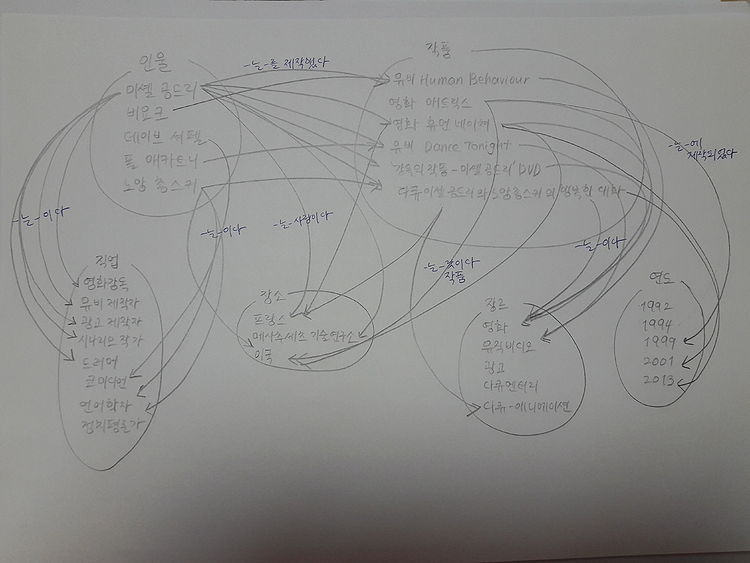 인물
미셸 공드리
비요크
데이브 셔펠
폴 매카트니
노암 촘스키
-는-를 제작했다
작품
뮤비 Human Behaviour
영화 매트릭스
영화 휴먼 네이쳐
뮤비 Dance Tonight
'감독의 작품-미셸 공드리' DVD
다큐 이셸 공드리와 노암 촘스키의 행복한 대화
-는-에
제작되었다
-는-이다
-는-이다
-는-사람이다
-는-것이다
작품
-는-이다
직업
영화감독
뮤비 제작자
광고 제작자
시나리오 작가
드러머
코미디언
언어학자
정치평론가
장소
프랑스
메사추세츠 기술연구소
미국
장르
영화
뮤직비디오
광고
다큐멘터리
다큐-애니메이션
연도
1992
1994
1999
2001
2013